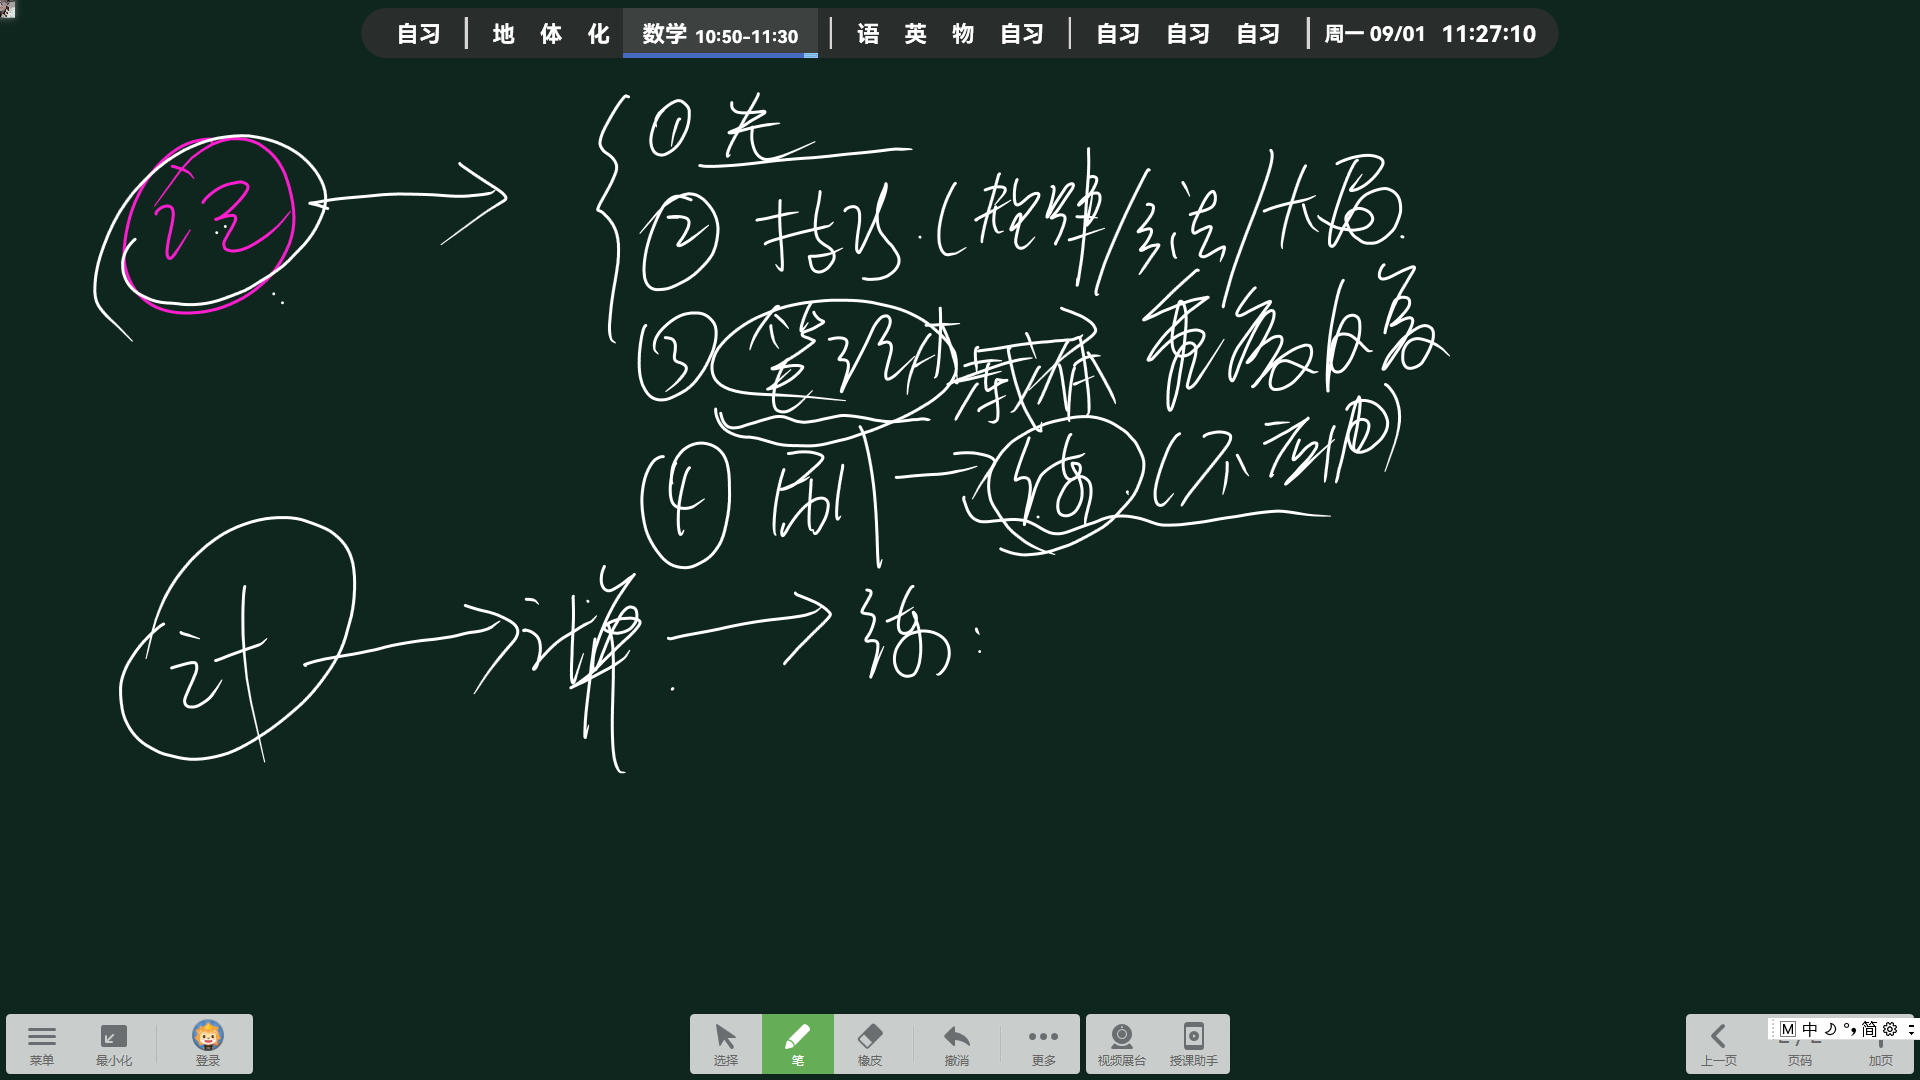 自习 | 地 体 化 数学 10:50-11:30 | 语 英 物 自习 | 自习 自习 自习 | 周一 09/01 11:27:10
记
① 先
② 技巧.(规律/方法/大局.
③ 笔记本 载体 重复反复
④ 刷 → 练 (不应抽)
计 → 计算 → 练:
菜单 最小化 登录
选择 笔 橡皮 撤消 更多 视频展台 授课助手
上一页 页码 加页
M 中 简